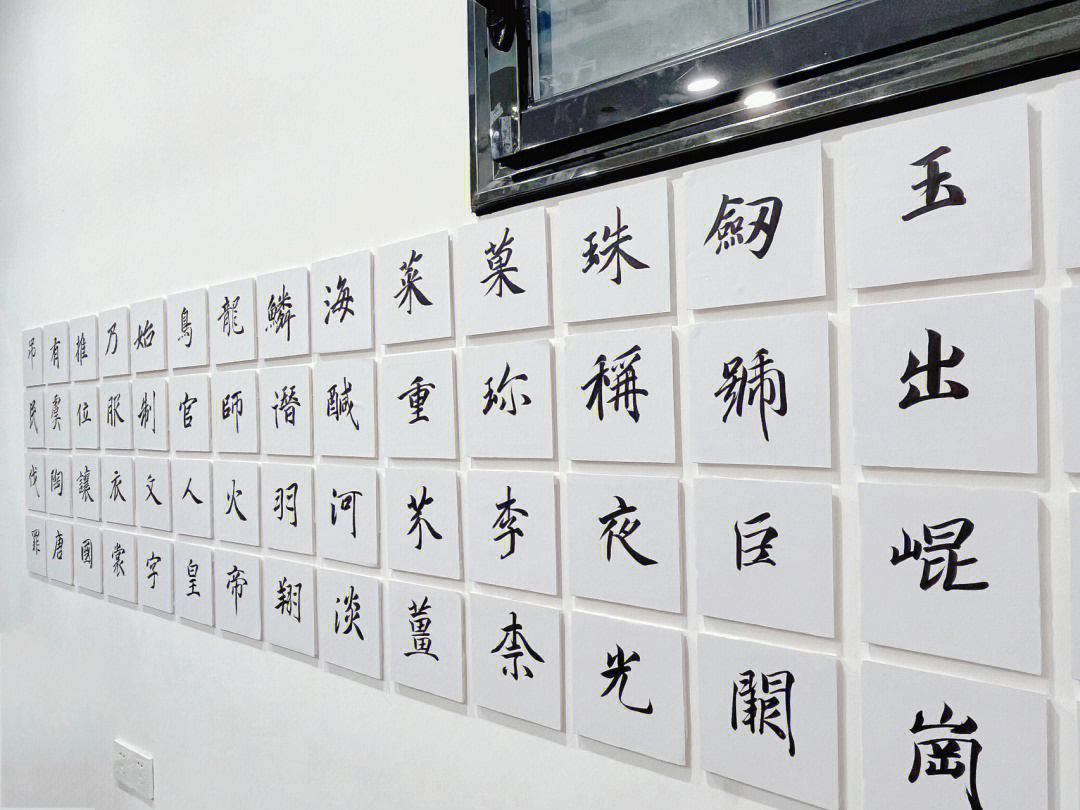 玉出崐崗
劔號巨闕
珠稱夜光
菓珎李柰
菜重芥薑
海醎河淡
鱗潛羽翔
龍師火帝
鳥官人皇
始制文字
乃服衣裳
推位讓國
有虞陶唐
吊民伐罪